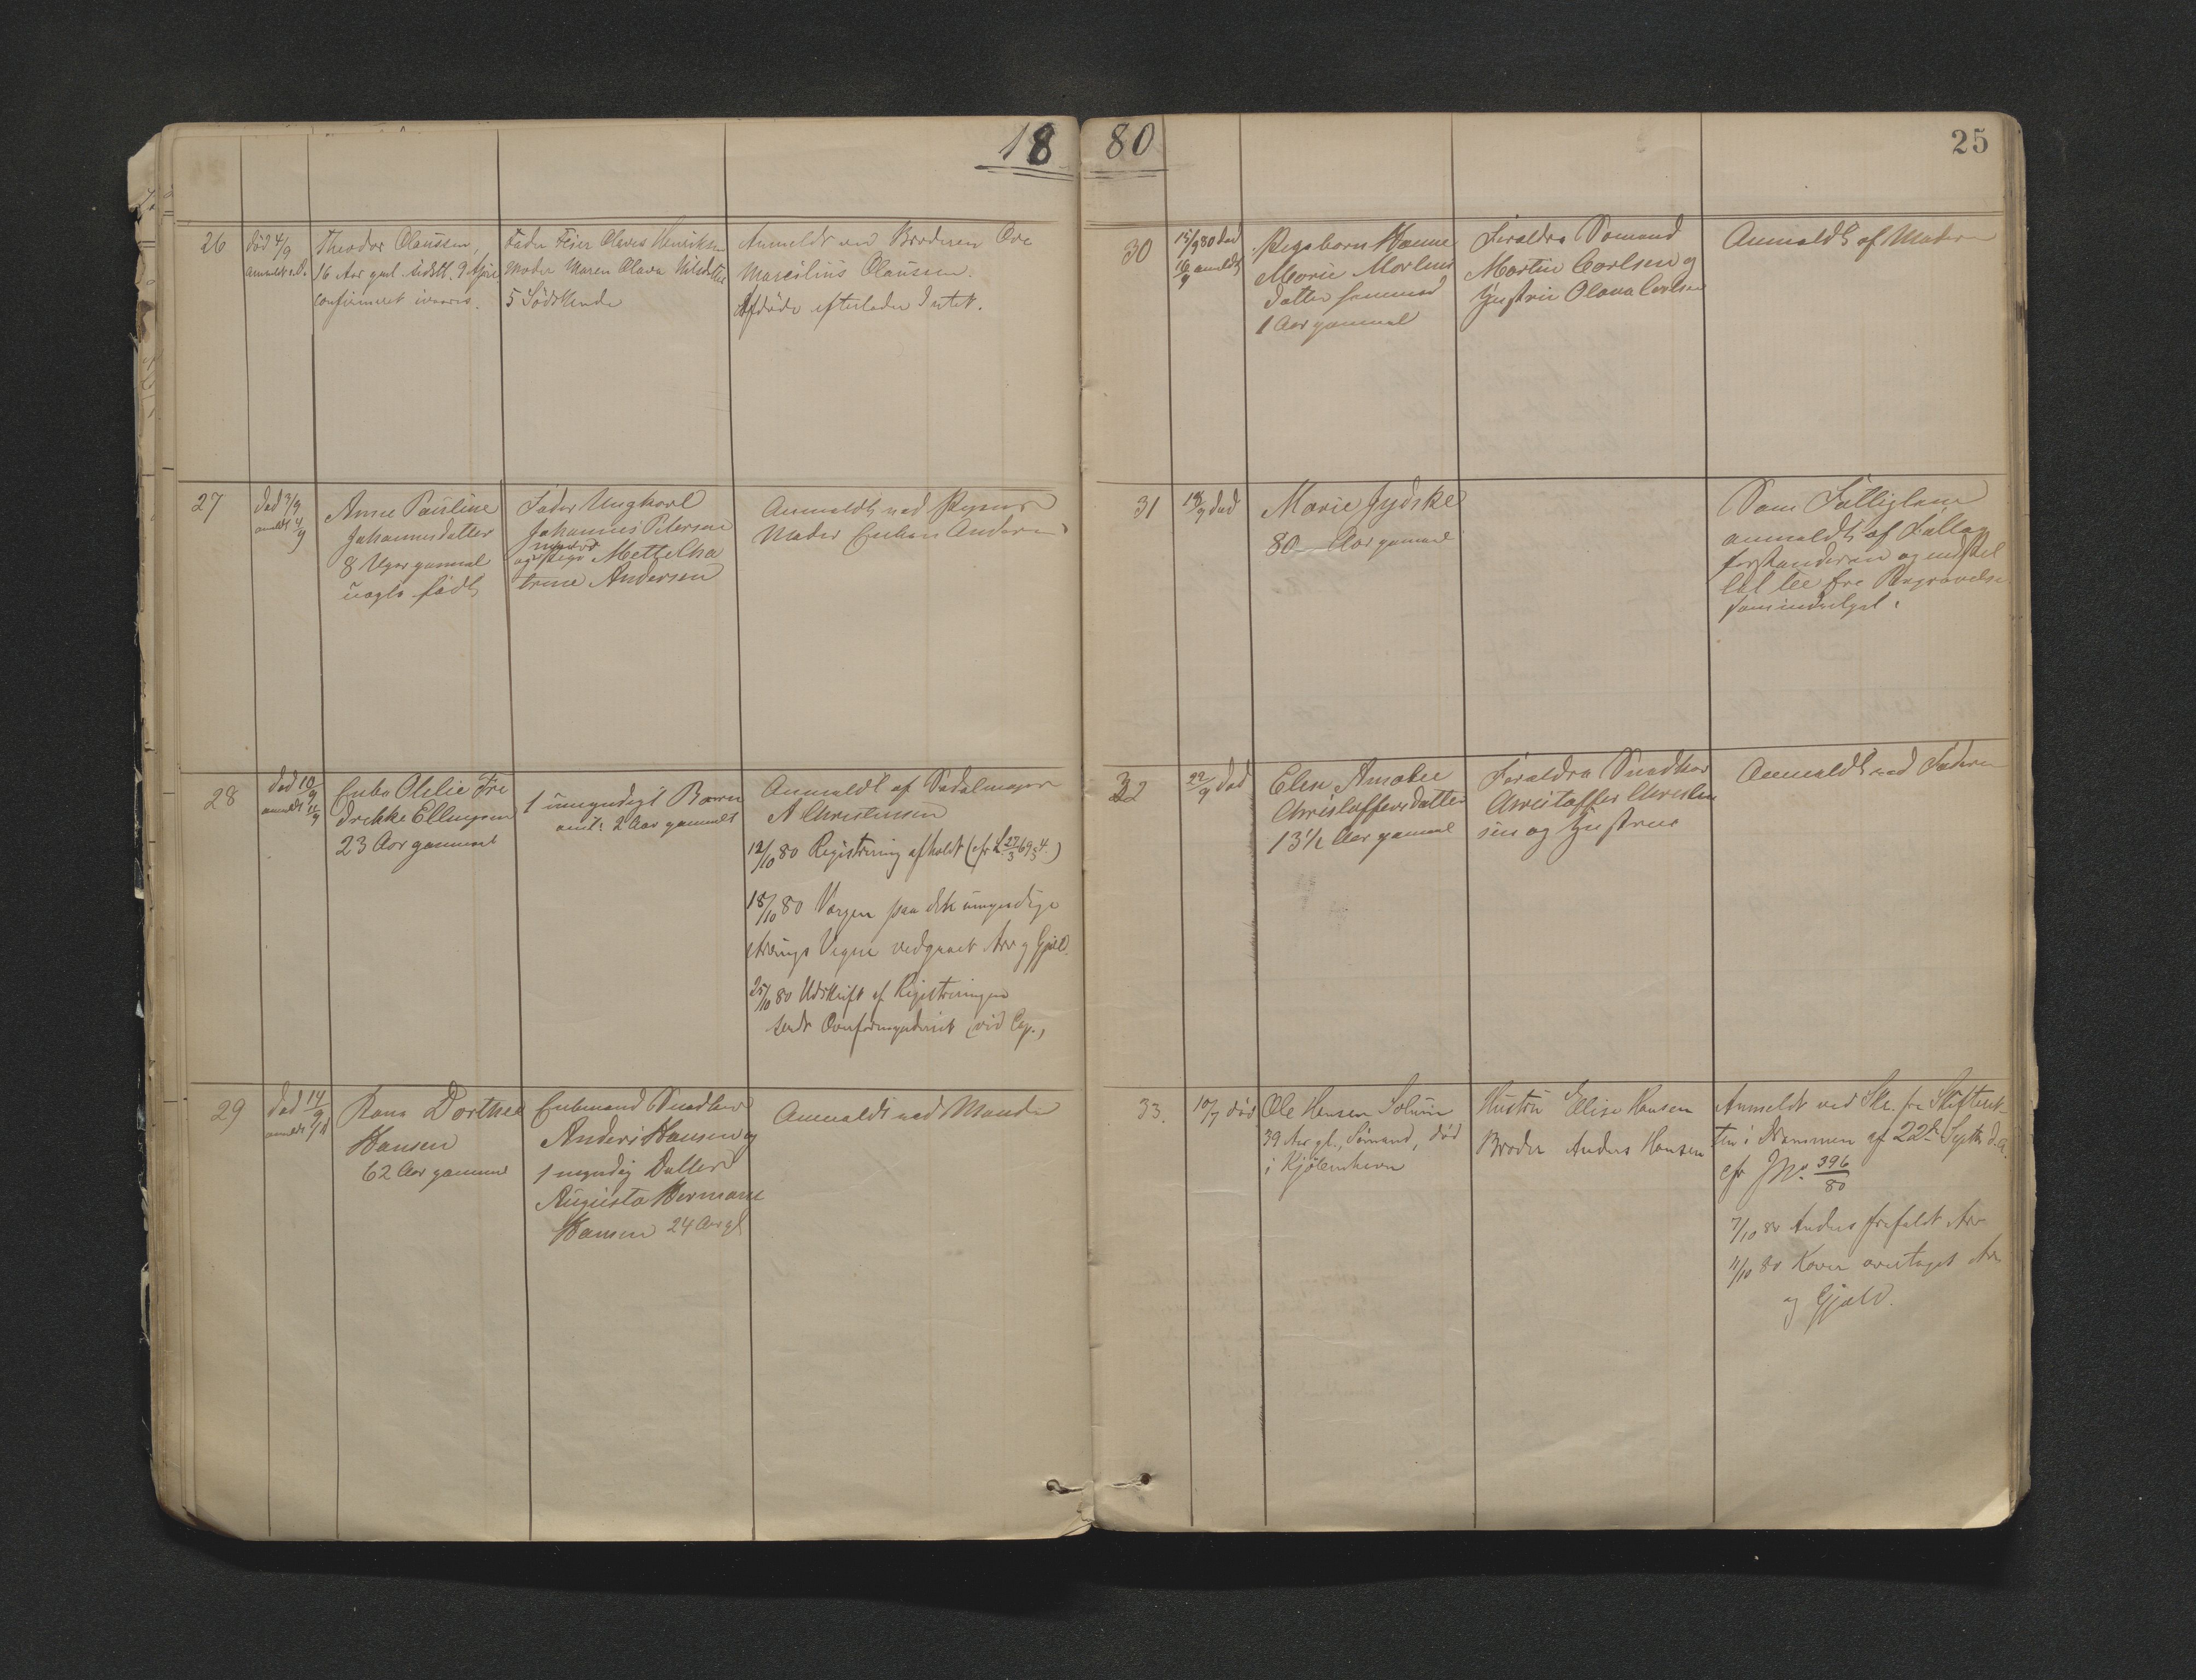 1880
25
26
død 4/9
anmeldt s.D.
Theodor Olaussen,
16 Aar gml. sidstl. 9 April
confirmeret ivaares.
Fader Feier Olaves Henriksen
Moder Maren Olava Nilsdatter
5 Södskende
Anmeldt ved Broderen Ove
Marcilius Olaussen.
Afdöde efterlader Intet.
27
død 3/9
anmeldt 4/9
Anne Pauline
Johannesdatter
8 Uger gammel
uægte født
Fader Ungkarl
Johannes Petersen
og Pige Mette Cha
trine Andersen
Anmeldt ved
Moder Enken Andersen
28
død 10/9
anmeldt 11/9
Enke Olelie Fre
drekke Ellingsen
23 Aar gammel
1 umyndigt Barn
omt: 2 Aar gammelt
Anmeldt af Sadelmager
A Christensen
12/10 80 Registrering afholdt (cfr L 27/3 69 § 4.)
18/10 80 Vergen paa dette umyndige
Arvings Vegne vedgaaet Arv og Gjæld.
25/10 80 Udskrift af Registreringen
sendt Overformynderiet (vid Cop.)
29
død 14/9
anmeldt
Dorthea
Hansen
62 Aar gammel
Enkemand Snedker
Anders Hansen og
1 myndig Datter
Augusta Hermane
Hansen 24 Aar gl
Anmeldt ved Manden
30
15/9 80 død
16/9 anmeldt
Pigebarn Hanne
Marie Martins
datter
1 Aar gammel
Foreldre Sømand
Martin Carlsen og
Hustrue Olava Carlsen
Anmeldt af Moderen
31
18/9 død
Marie Jydske
80 Aar gammel
Som Fattiglem
anmeldt af Fattig
forstanderen og
fri Begravelse
32
22/9 død
Elen Amalie
Christoffersdatter
13 1/2 Aar gammel
Foreldre Snedker
Christoffer Christen
sen og Hustrue
Anmeldt ved Faderen
33.
10/7 død
Ole Hansen Solum
39 Aar gl., Sömand, död
i Kjöbenhavn
Hustru Elise Hansen
Broder Anders Hansen
Anmeldt ved Skr. fra Skifteret-
ten i Drammen af 22de Septbr d.A.
cfr JNo. 396/80
7/10 80 Anders frafaldt Arv
11/10 80 Konen overtaget Arv
og Gjæld.